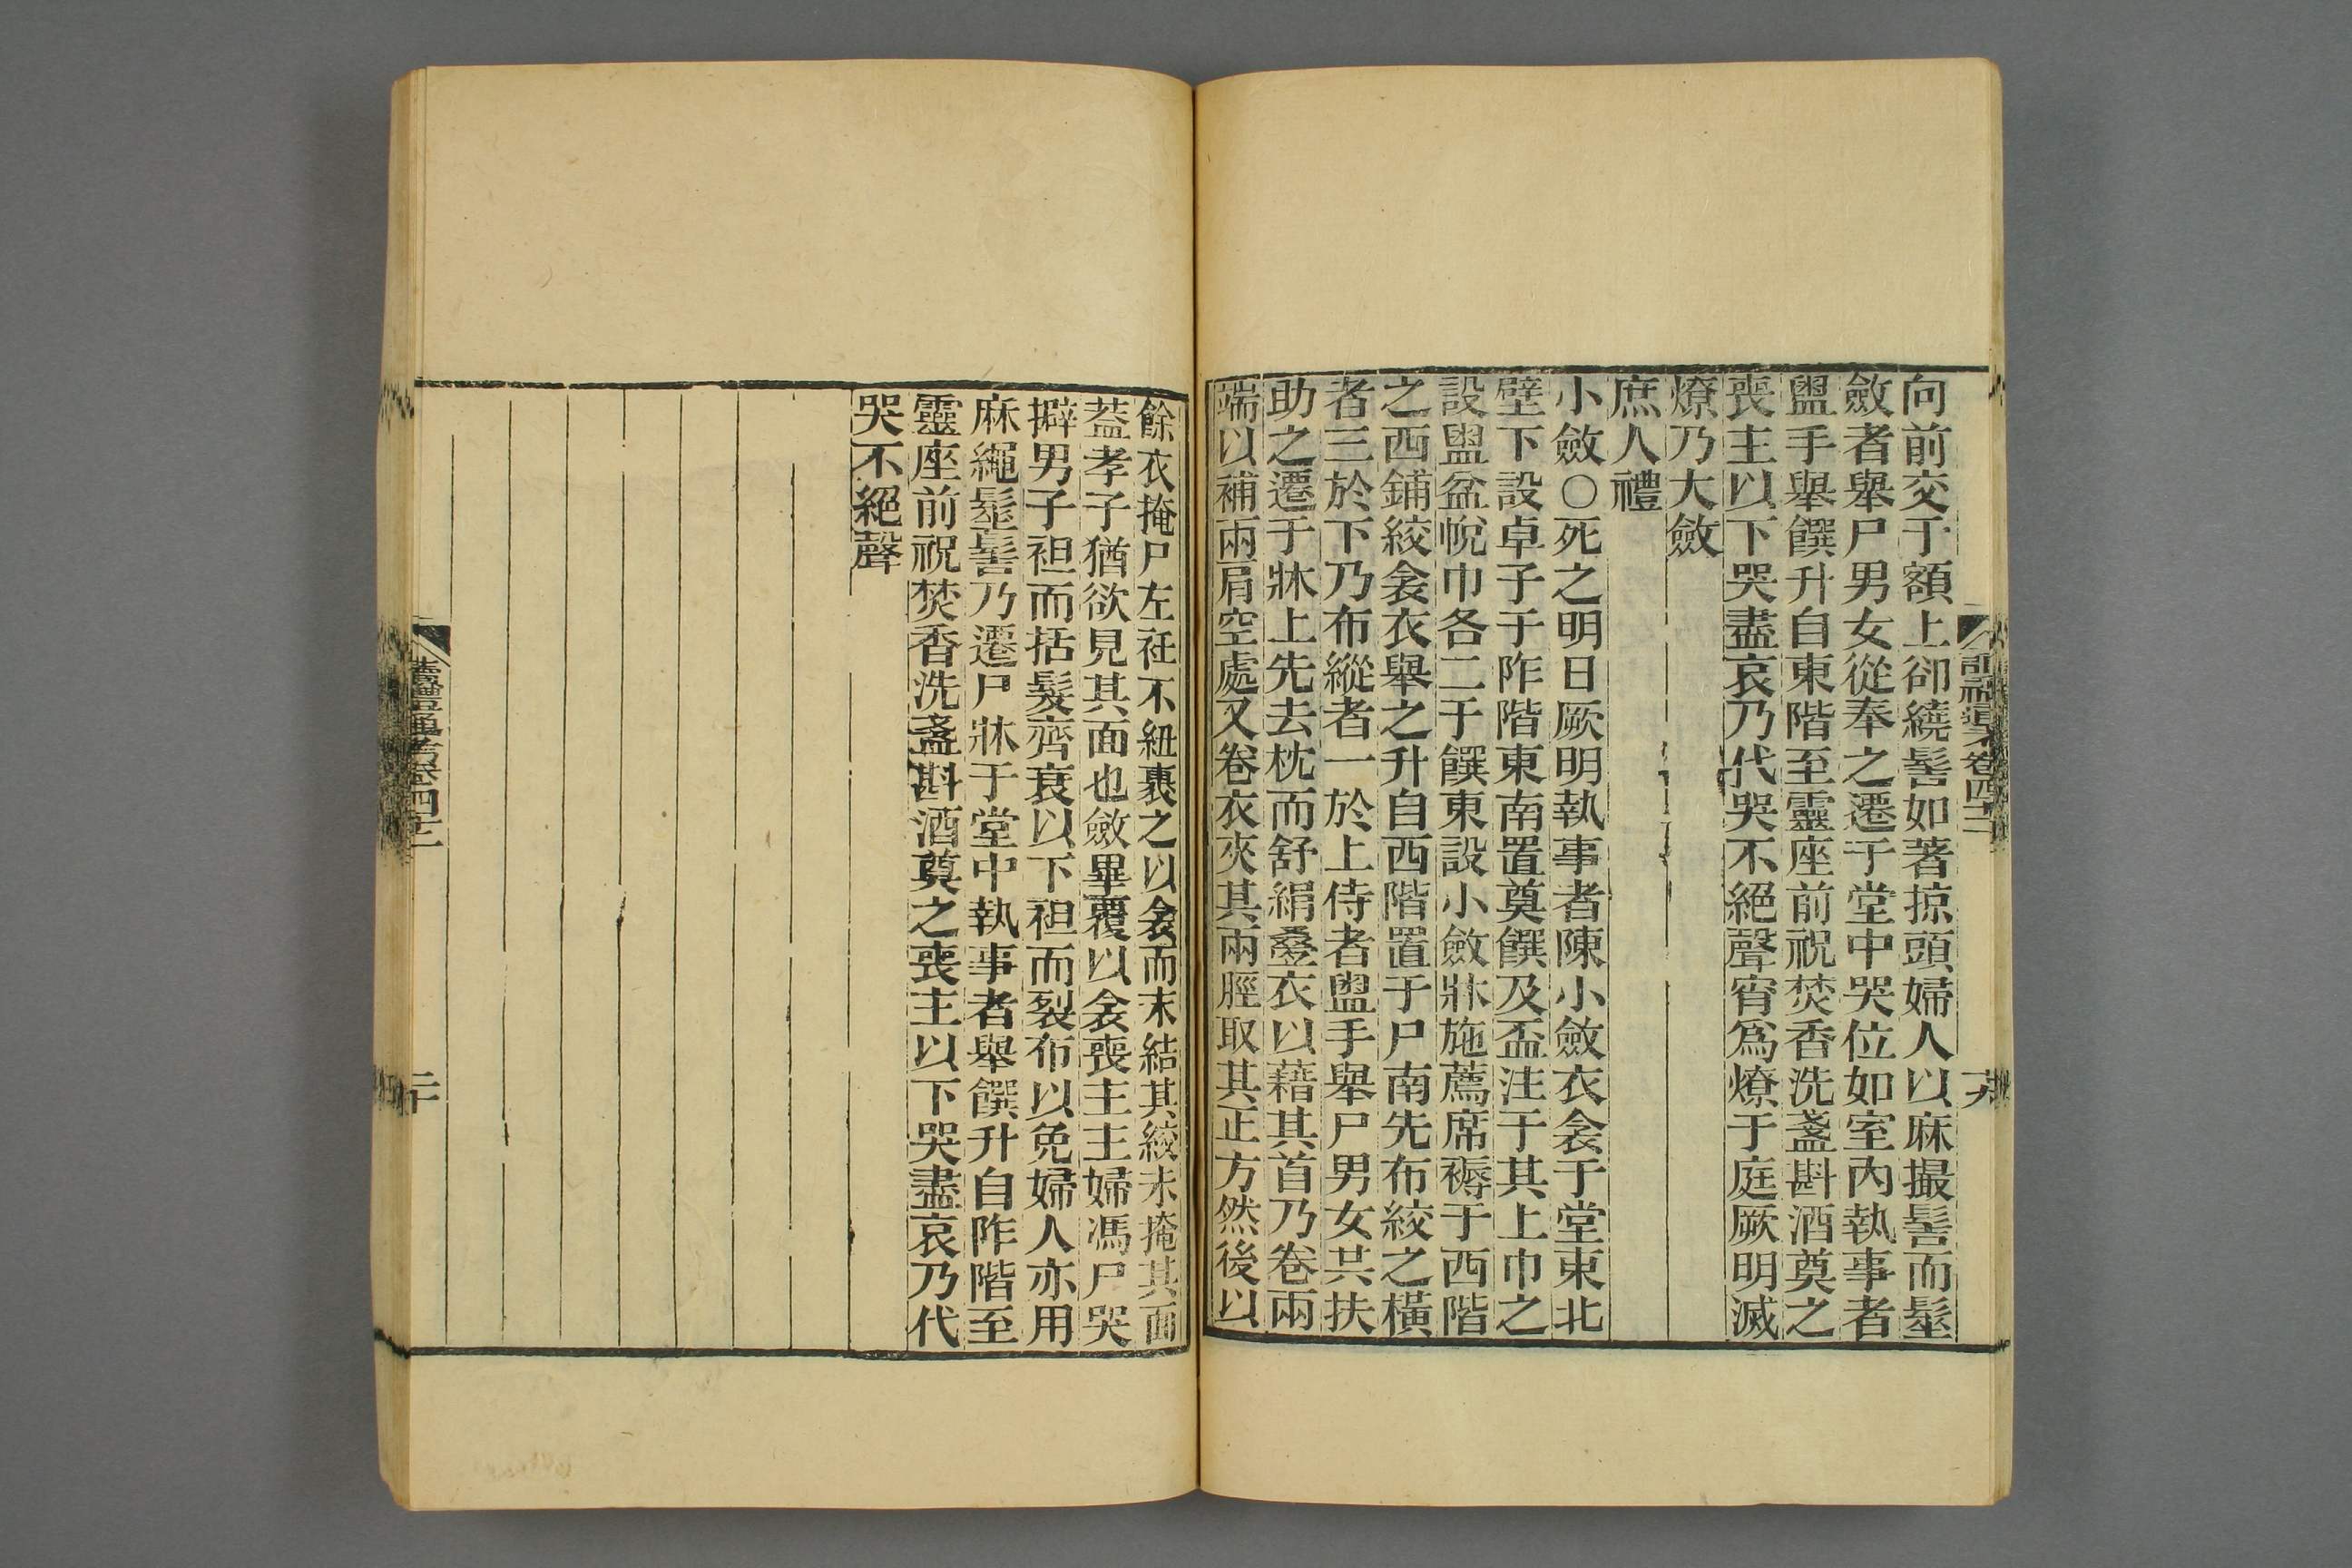 向前交于額上卻繞髻如著掠頭婦人以麻撮髻而髽
斂者舉尸男女從奉之遷于堂中哭位如室內執事者
盥手舉饌升自東階至靈座前祝焚香洗盞斟酒奠之
喪主以下哭盡哀乃代哭不絕聲宵爲燎于庭厥明滅
燎乃大斂
庶人禮
小斂○死之明日厥明執事者陳小斂衣衾于堂東北
壁下設卓子于阼階東南置奠饌及盃注于其上巾之
設盥盆帨巾各二于饌東設小斂牀施薦席褥于西階
之西鋪絞衾衣舉之升自西階置于尸南先布絞之橫
者三於下乃布縱者一於上侍者盥手舉尸男女共扶
助之遷于牀上先去枕而舒絹疊衣以藉其首乃卷兩
端以補兩肩空處又卷衣夾其兩脛取其正方然後以
卷四十二
十九
餘衣掩尸左衽不紐裹之以衾而未結其絞未掩其面
葢孝子猶欲見其面也斂畢覆以衾喪主主婦馮尸哭
擗男子袒而括髮齊衰以下袒而裂布以免婦人亦用
麻繩髽髻乃遷尸牀于堂中執事者舉饌升自阼階至
靈座前祝焚香洗盞斟酒奠之喪主以下哭盡哀乃代
哭不絕聲
讀禮通考卷四十二
二十